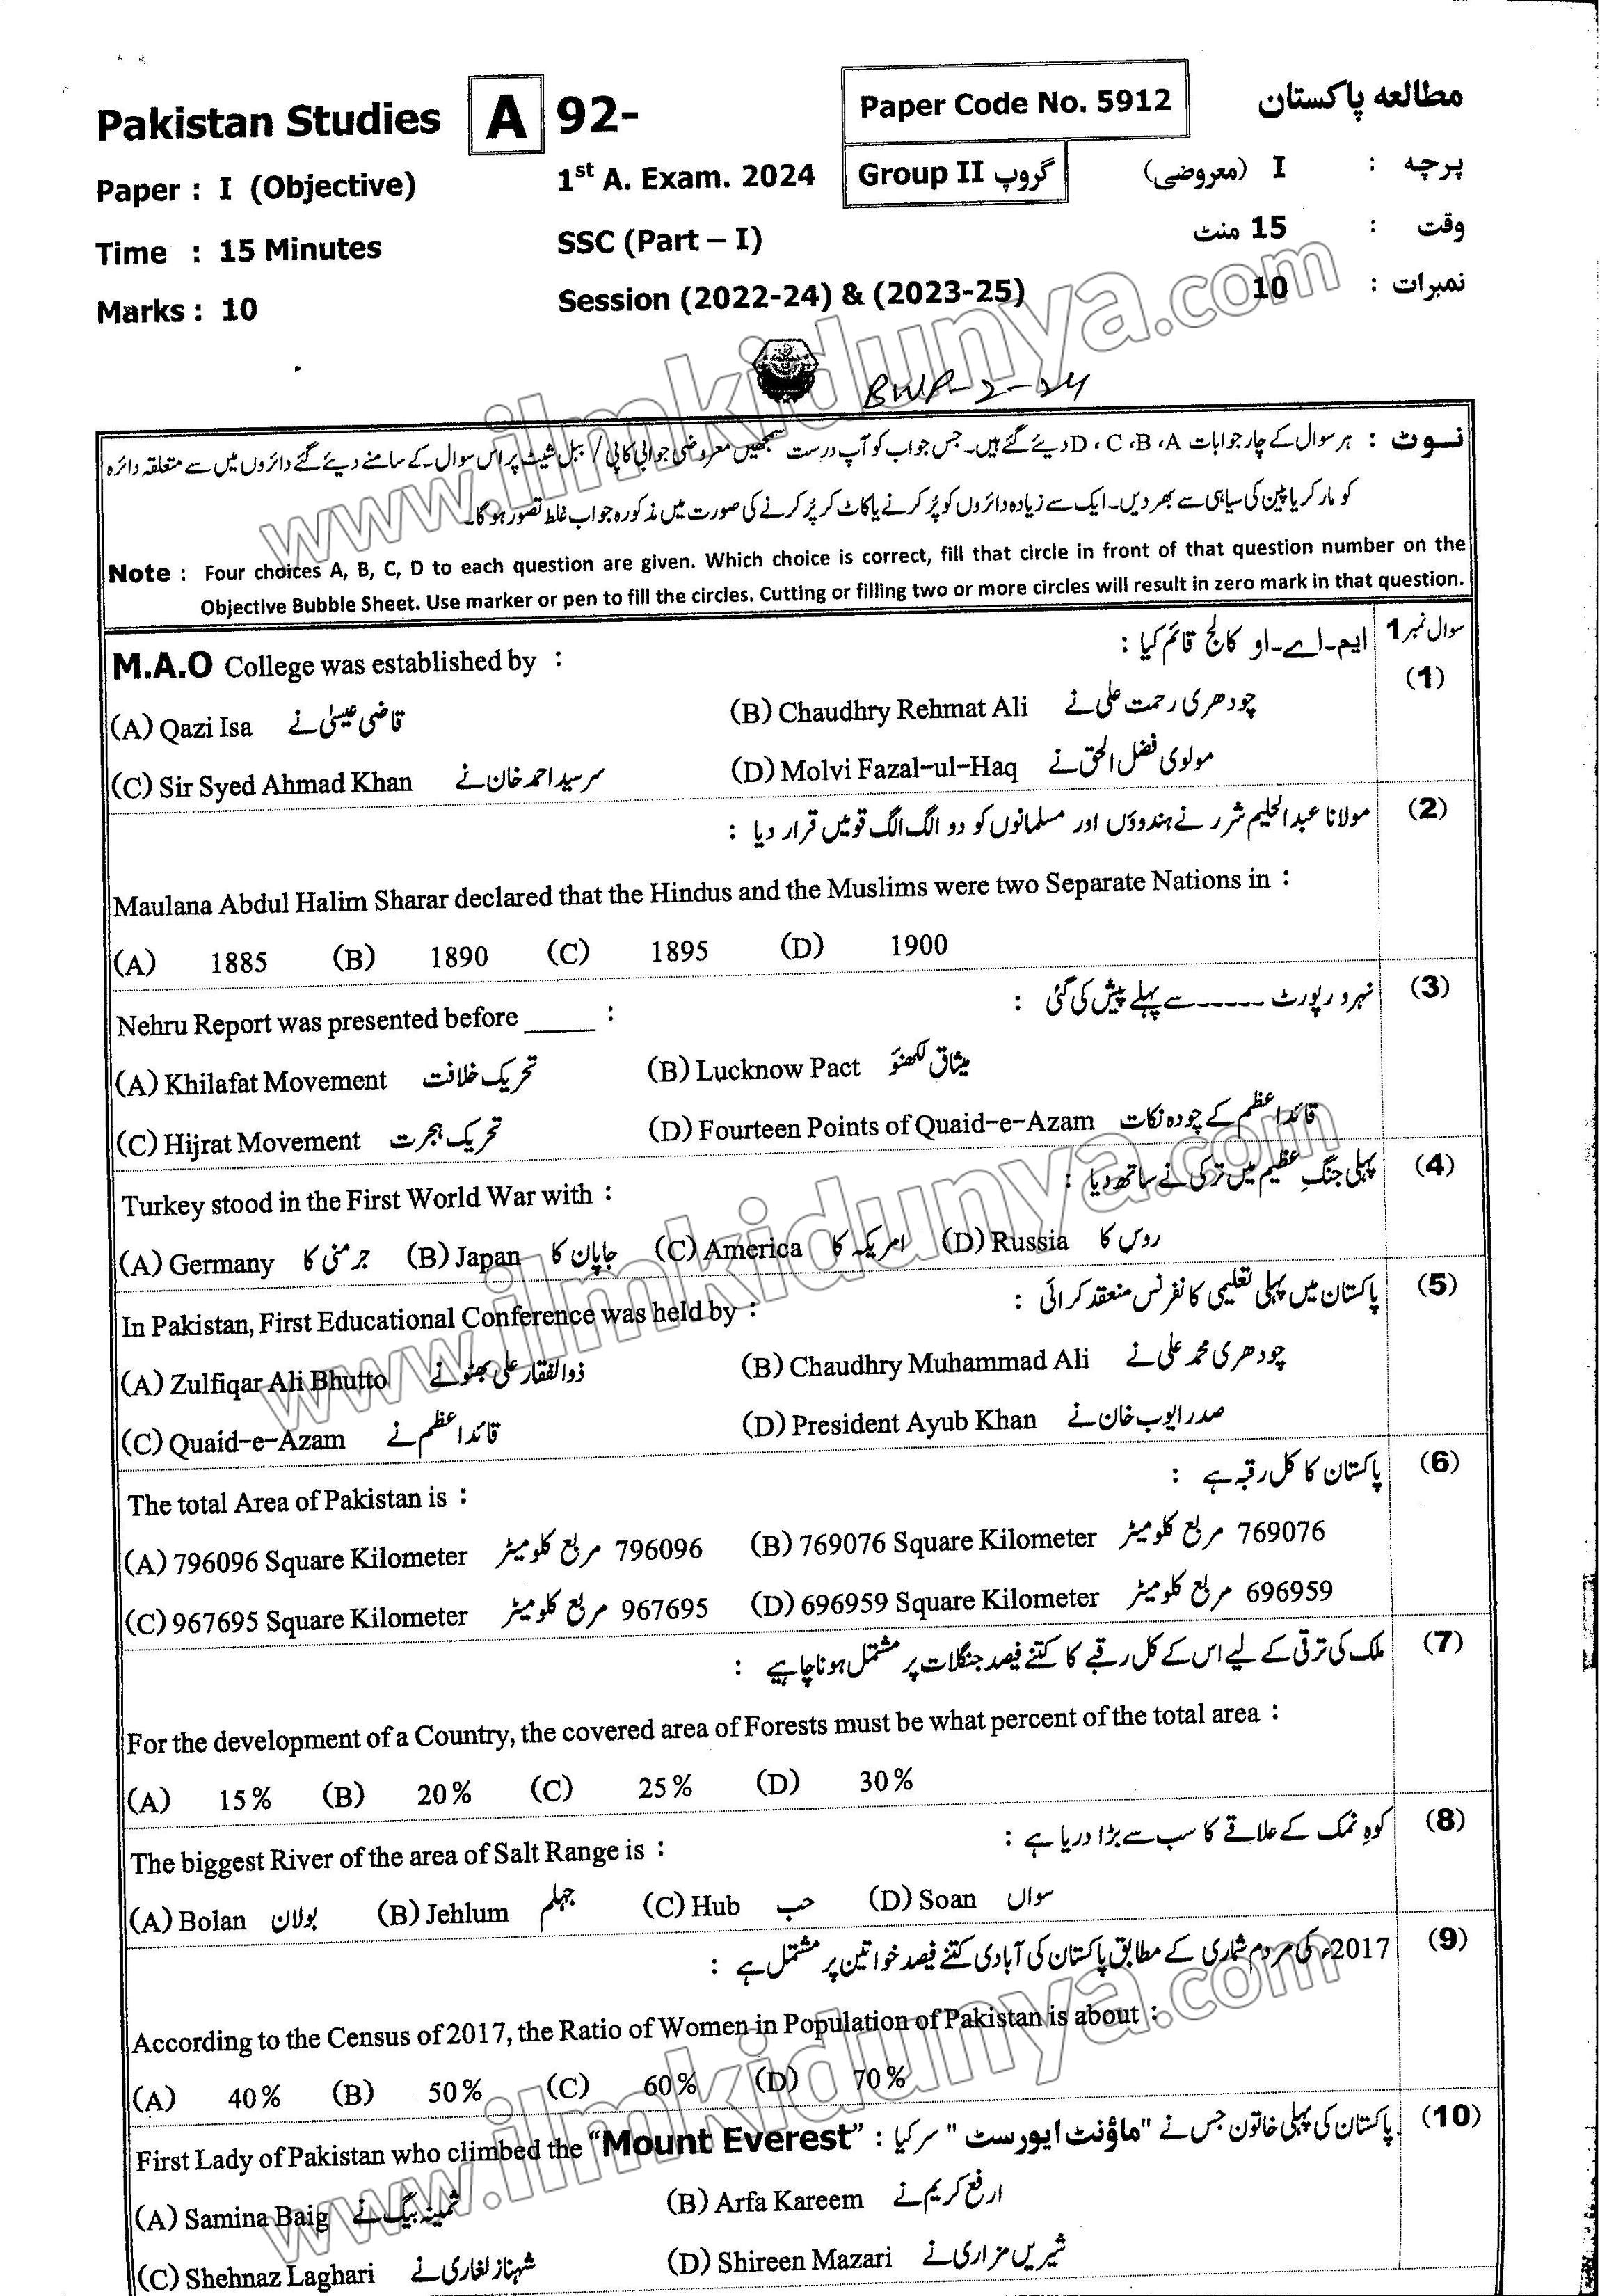 Pakistan Studies A 92- Paper Code No. 5912 مطالعہ پاکستان
Paper : I (Objective) 1st A. Exam. 2024 Group II گروپ پرچہ : I (معروضی)
Time : 15 Minutes SSC (Part – I) وقت : 15 منٹ
Marks : 10 Session (2022-24) & (2023-25) نمبرات : 10
BWP-2-24
نوٹ : ہر سوال کے چار جوابات A، B، C، D دیئے گئے ہیں۔ جس جواب کو آپ درست سمجھیں معروضی جوابی کاپی / ببل شیٹ پر اس سوال کے سامنے دیئے گئے دائروں میں سے متعلقہ دائرہ
کو مارکر یا پین کی سیاہی سے بھر دیں۔ ایک سے زیادہ دائروں کو پُر کرنے یا کاٹ کر پُر کرنے کی صورت میں مذکورہ جواب غلط تصور ہو گا۔
Note : Four choices A, B, C, D to each question are given. Which choice is correct, fill that circle in front of that question number on the
Objective Bubble Sheet. Use marker or pen to fill the circles. Cutting or filling two or more circles will result in zero mark in that question.
سوال نمبر 1
(1) ایم۔اے۔او کالج قائم کیا :
M.A.O College was established by :
(A) Qazi Isa قاضی عیسیٰ نے (B) Chaudhry Rehmat Ali چودھری رحمت علی نے
(C) Sir Syed Ahmad Khan سرسید احمد خان نے (D) Molvi Fazal-ul-Haq مولوی فضل الحق نے
(2) مولانا عبدالحلیم شرر نے ہندوؤں اور مسلمانوں کو دو الگ الگ قومیں قرار دیا :
Maulana Abdul Halim Sharar declared that the Hindus and the Muslims were two Separate Nations in :
(A) 1885 (B) 1890 (C) 1895 (D) 1900
(3) نہرو رپورٹ ----- سے پہلے پیش کی گئی :
Nehru Report was presented before _____ :
(A) Khilafat Movement تحریک خلافت (B) Lucknow Pact میثاق لکھنؤ
(C) Hijrat Movement تحریک ہجرت (D) Fourteen Points of Quaid-e-Azam قائداعظم کے چودہ نکات
(4) پہلی جنگِ عظیم میں ترکی نے ساتھ دیا :
Turkey stood in the First World War with :
(A) Germany جرمنی کا (B) Japan جاپان کا (C) America امریکہ کا (D) Russia روس کا
(5) پاکستان میں پہلی تعلیمی کانفرنس منعقد کرائی :
In Pakistan, First Educational Conference was held by :
(A) Zulfiqar Ali Bhutto ذوالفقار علی بھٹو نے (B) Chaudhry Muhammad Ali چودھری محمد علی نے
(C) Quaid-e-Azam قائداعظم نے (D) President Ayub Khan صدر ایوب خان نے
(6) پاکستان کا کل رقبہ ہے :
The total Area of Pakistan is :
(A) 796096 Square Kilometer 796096 مربع کلومیٹر (B) 769076 Square Kilometer 769076 مربع کلومیٹر
(C) 967695 Square Kilometer 967695 مربع کلومیٹر (D) 696959 Square Kilometer 696959 مربع کلومیٹر
(7) ملک کی ترقی کے لیے اس کے کل رقبے کا کتنے فیصد جنگلات پر مشتمل ہونا چاہیے :
For the development of a Country, the covered area of Forests must be what percent of the total area :
(A) 15% (B) 20% (C) 25% (D) 30%
(8) کوہِ نمک کے علاقے کا سب سے بڑا دریا ہے :
The biggest River of the area of Salt Range is :
(A) Bolan بولان (B) Jehlum جہلم (C) Hub حب (D) Soan سواں
(9) 2017ء کی مردم شماری کے مطابق پاکستان کی آبادی کتنے فیصد خواتین پر مشتمل ہے :
According to the Census of 2017, the Ratio of Women in Population of Pakistan is about :
(A) 40% (B) 50% (C) 60% (D) 70%
(10) پاکستان کی پہلی خاتون جس نے "ماؤنٹ ایورسٹ" سر کیا :
First Lady of Pakistan who climbed the "Mount Everest"
(A) Samina Baig ثمینہ بیگ نے (B) Arfa Kareem ارفع کریم نے
(C) Shehnaz Laghari شہناز لغاری نے (D) Shireen Mazari شیریں مزاری نے
www.ilmkidunya.com
www.ilmkidunya.com
www.ilmkidunya.com